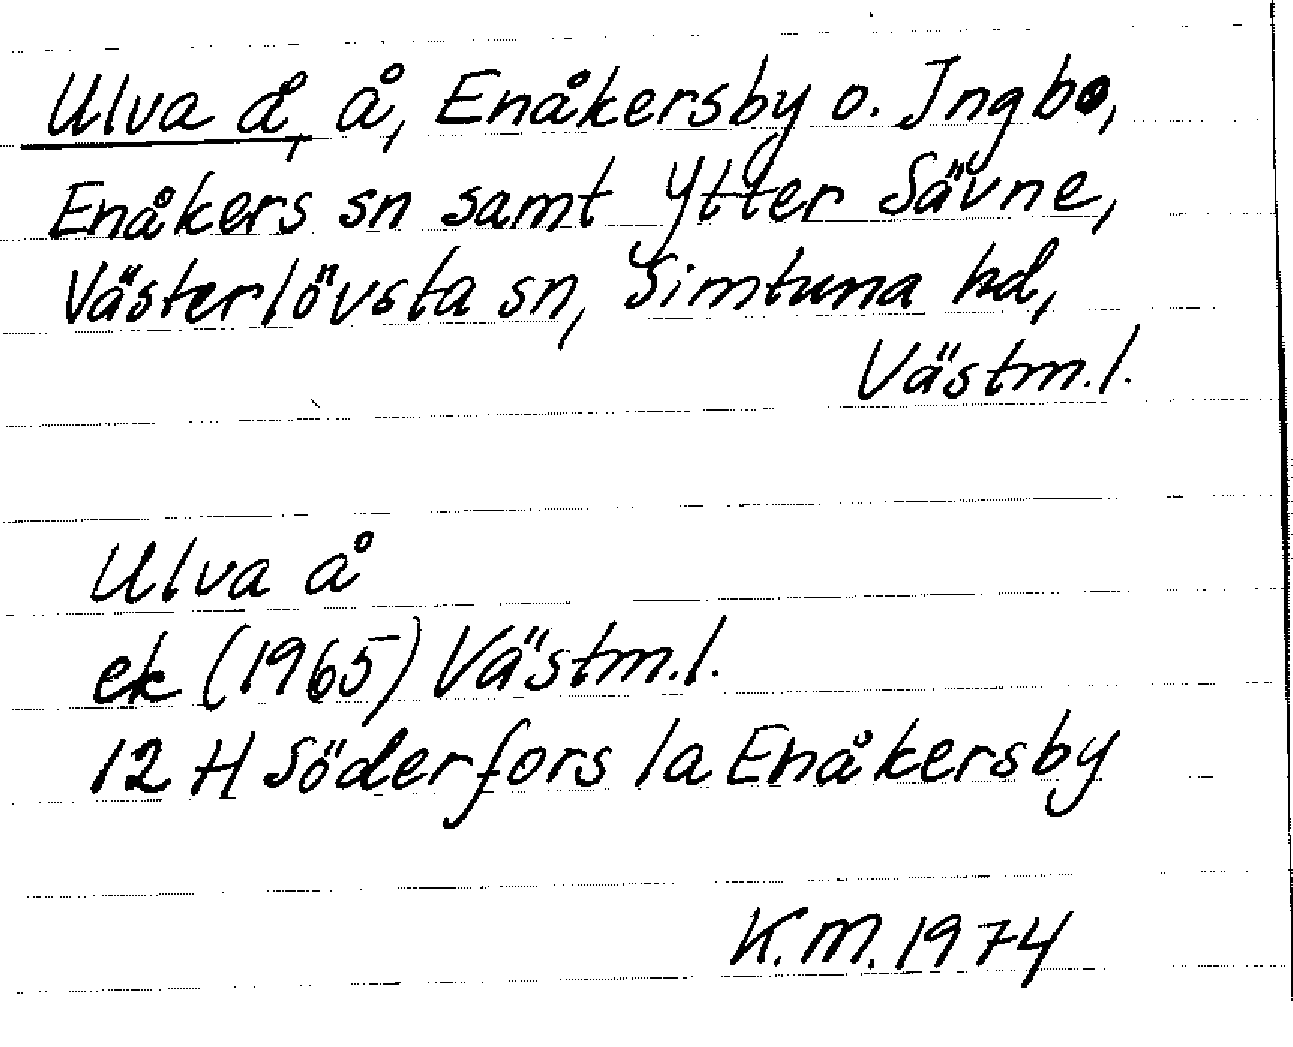 Ulva å, å, Enåkersby o. Ingbo,
Enåkers sn samt Ytter Sävne,
Västerlövsta sn, Simtuna hd,
Västm.l.
Ulva å
ek (1965) Västm.l.
12 H Söderfors 1a Enåkersby
K.M. 1974